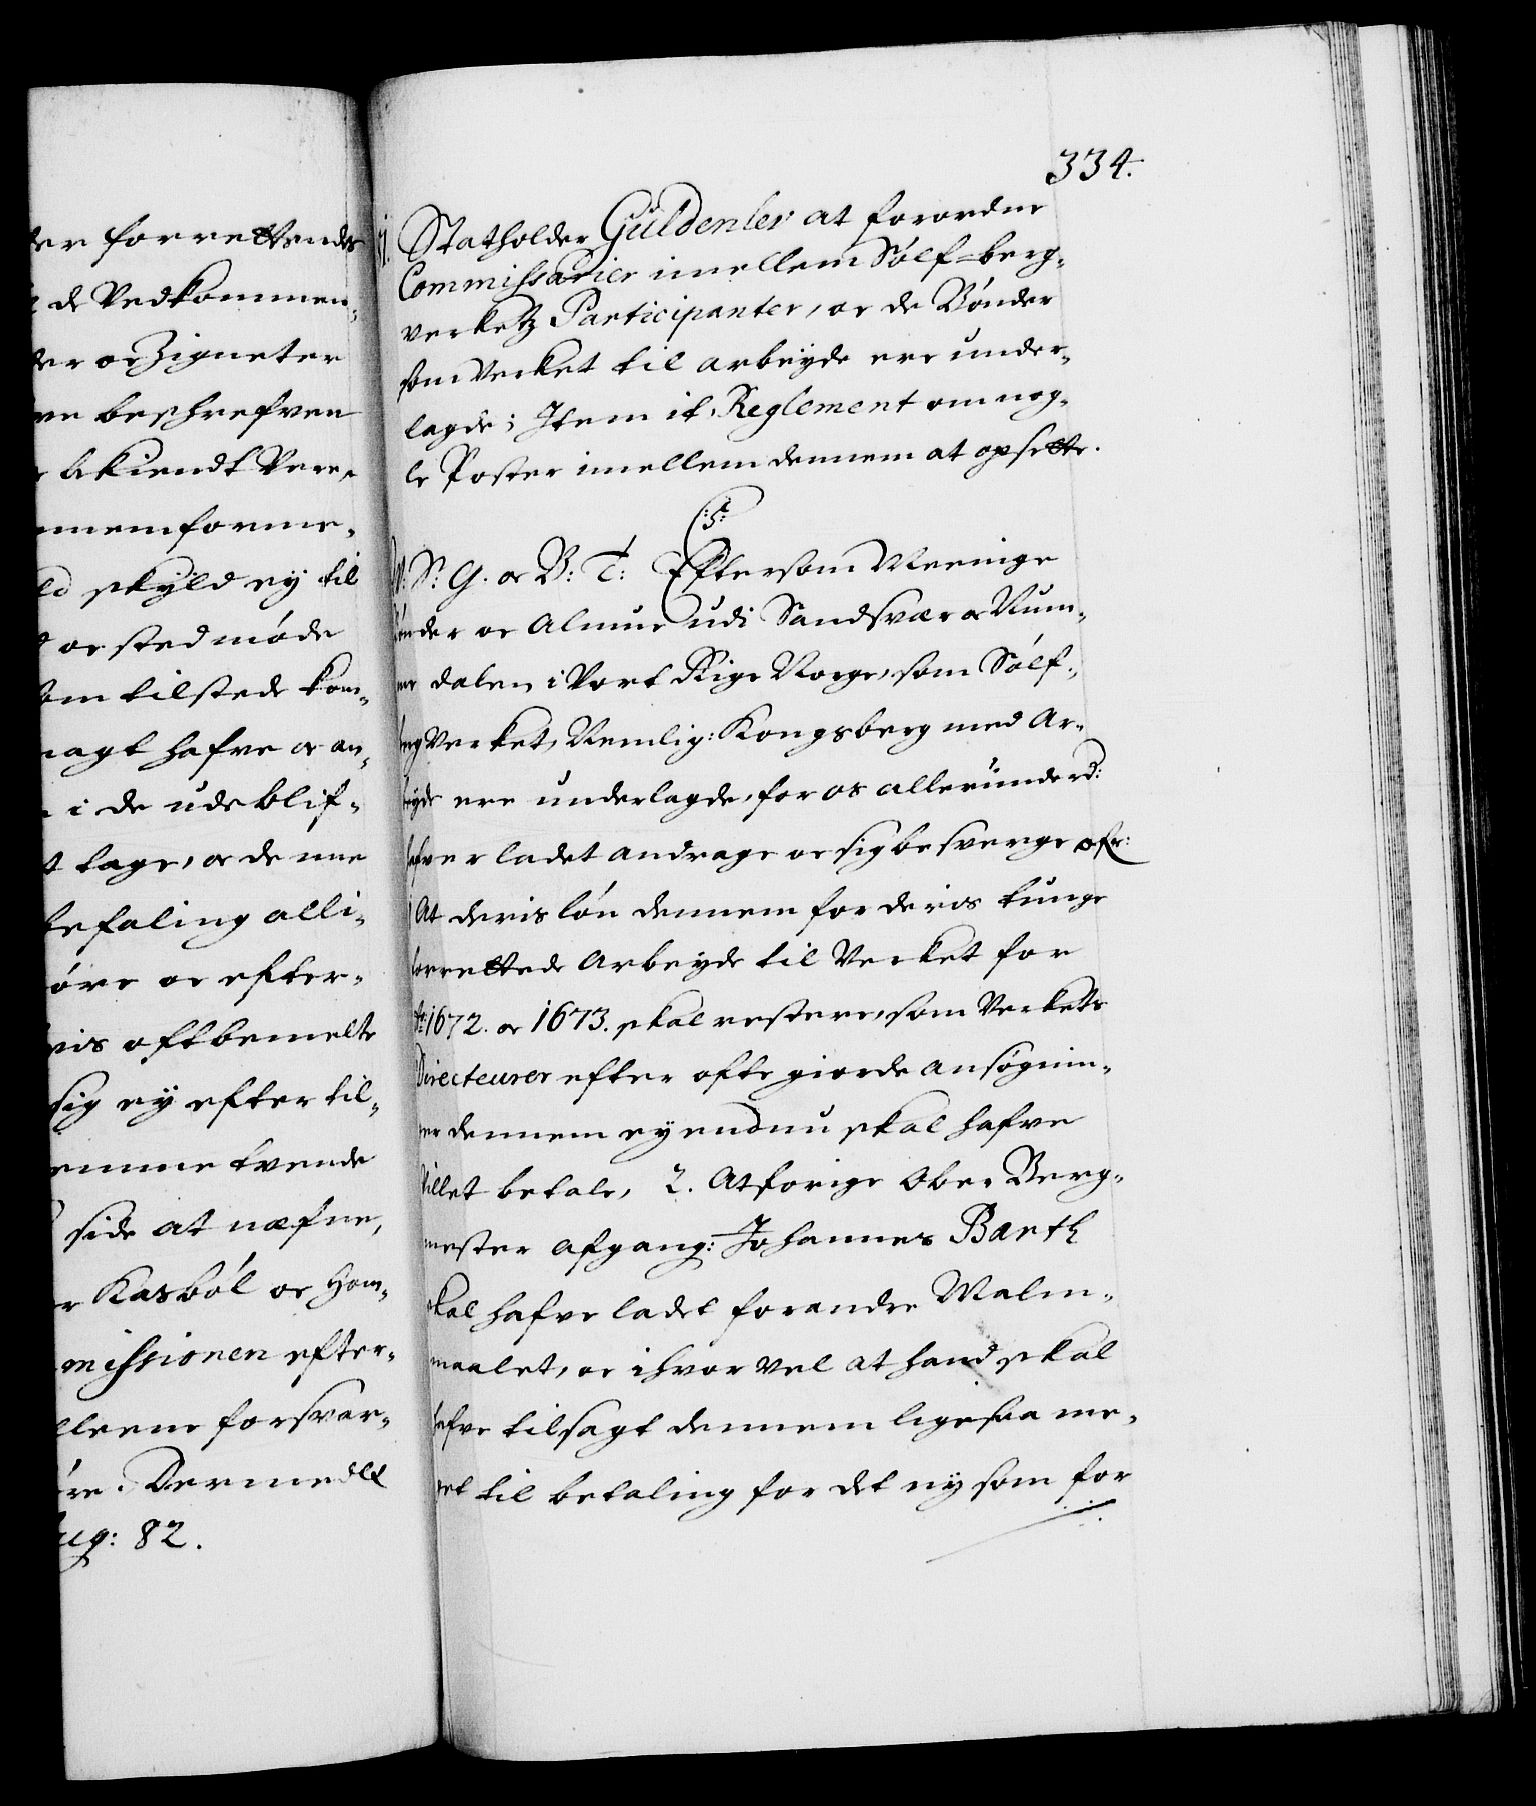 der forrettendes
de Vedkommen-
der oc Zigneter
beschrefven
bekiendt Vere,
nnemforme-
skyld ey til
oc sted møde
tilstede kom-
magt hafve oc an-
i de udeblif-
tage, oc denne
befaling alli-
giøre oc efter-
oftbemelte
sig ey efter til-
emme tvende
side at næfne,
Kasbøl oc Hom-
missionen efter-
forsvar-
giøre. Dermedtt
Aug: 82.
334.
Statholder Güldenlev at forordne
Commissarier imellem Sølf-berg-
verketz Participanter, oc de Bønder
som Verket til arbeyde ere under-
lagde; Item it Reglement om nog-
le Poster imellem dennem at opsette.
C:5:
V: S: G. oc B: T: Eftersom Meenige
Bønder oc Almue udi Sandsvær oc Num-
me dalen i Vort Rige Norge, som Sølf-
berg Verket, Nemlig: Kongsberg med Ar-
beyde ere underlagde, for os allerunderd:
hafver ladet andrage oc sig besverge ofr:
1 At deris løn dennem for deris tunge
forrettede Arbeyde til Verket for
Ao: 1672. oc 1673. skal restere, som Verkets
Directeurer efter ofte giorde ansøgnin-
ger dennem ey endnu skal hafve
Villet betale, 2. At forige Ober Berg-
mester afgang: Johannes Barth
skal hafve ladet forandre Malm-
maalet, oc ihvorvel at hand skal
hafve tilsagt dennem ligesaa me-
get til betaling for det ny som for